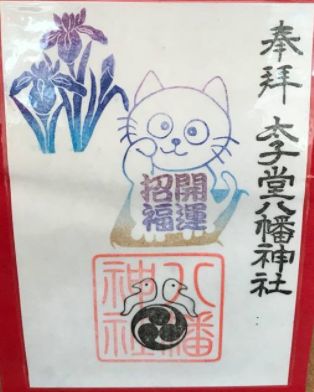 奉拝 太子堂八幡神社
開運
招福
八幡
神社